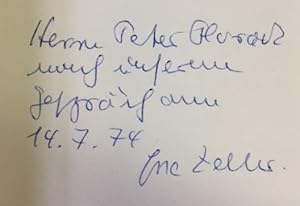 Herrn Peter
nach unserem
Gespräch am
14. 7. 74
Eva Zeller.